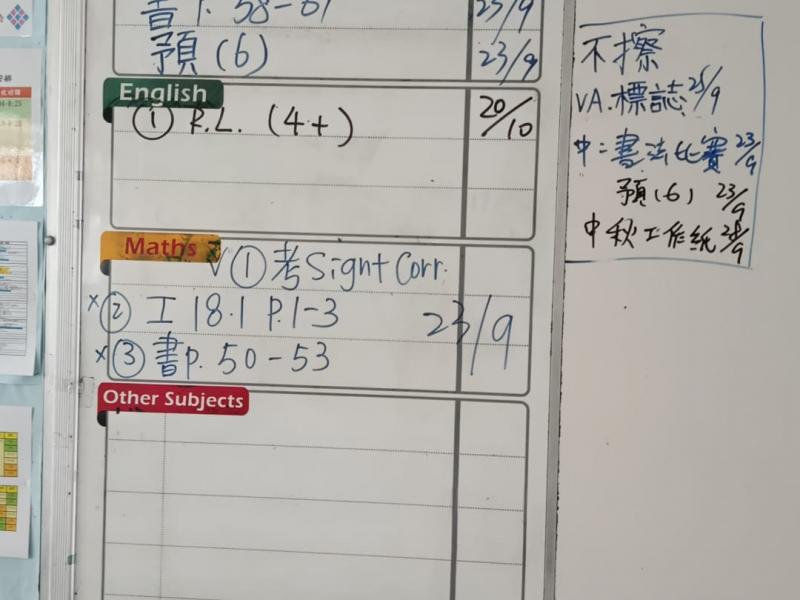 書P. 58-61 23/9
預(6) 23/9
English
① R.L. (4+) 20/10
Maths
√ ① 考Sign+Corr.
x ② 工 18.1 P.1-3 23/9
x ③ 書p. 50-53
Other Subjects
不擦
VA.標誌 25/9
中=書法比賽 23/9
預(6) 23/9
中秋工作紙 28/9